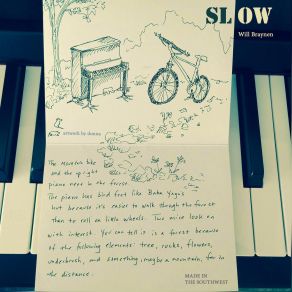 SLOW
Will Braynen
artwork by donna
The mountain bike
and the upright
piano meet in the forest.
The piano has bird feet like Baba Yaga's
hut because it's easier to walk though the forest
than to roll on little wheels. Two mice look on
with interest. You can tell it is a forest because
of the following elements: tree, rocks, flowers,
underbrush, and something, maybe a mountain, far in
the distance.
MADE IN
THE SOUTHWEST